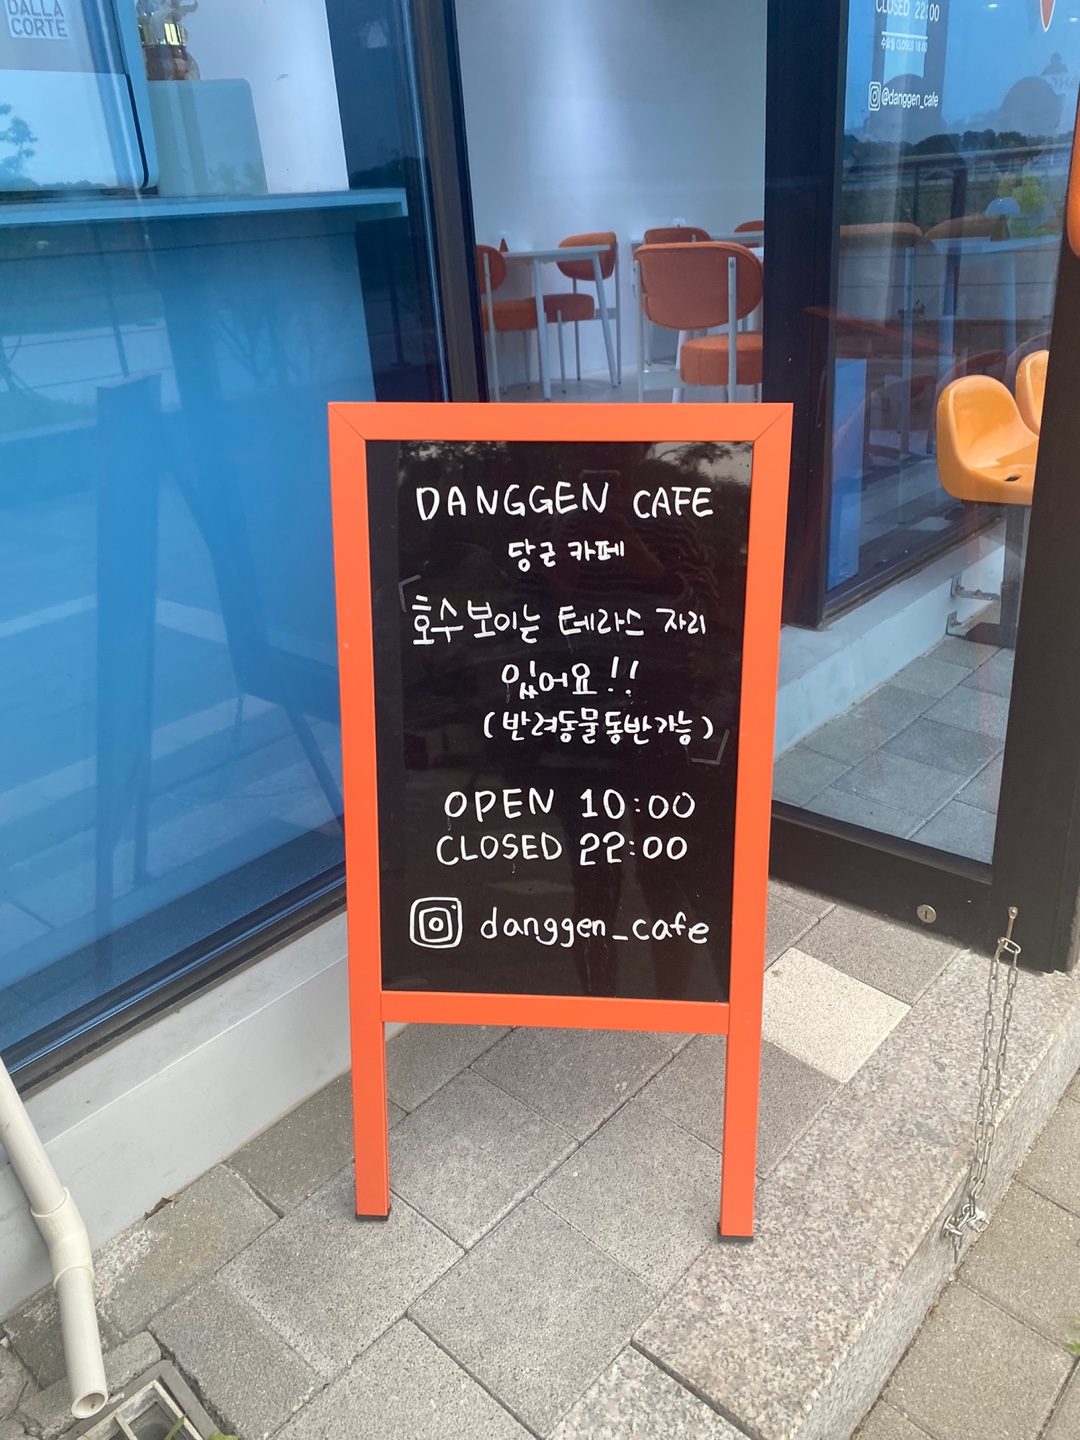 DALLA
CORTE
CLOSED 22:00
수요일 CLOSED 18:00
@danggen_cafe
DANGGEN CAFE
당근 카페
호수 보이는 테라스 자리
있어요!!
(반려동물 동반가능)
OPEN 10:00
CLOSED 22:00
danggen_cafe